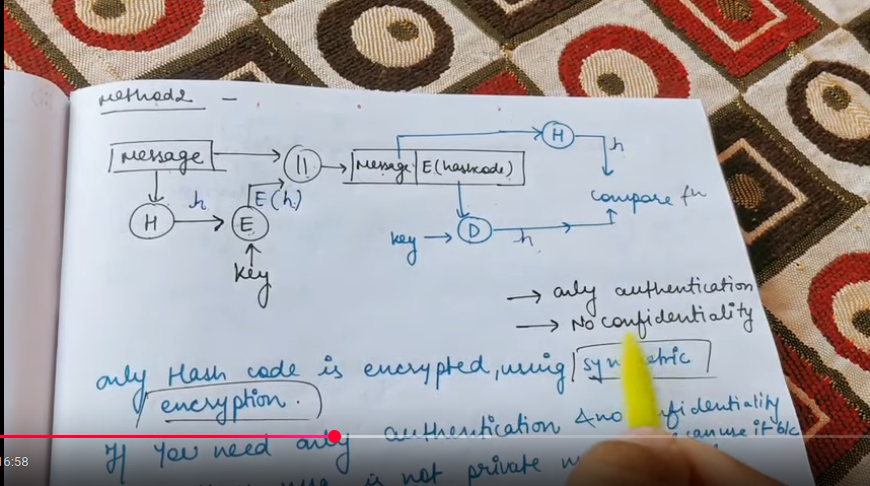 Method 2 -
Message
||
Message E(hashcode)
H
h
compare fn
H
h
E
E(h)
key
key
D
h
→ only authentication
→ No confidentiality
only Hash code is encrypted, using symmetric
encryption.
If you need only authentication & no confidentiality
can use it b/c
is not private
16:58